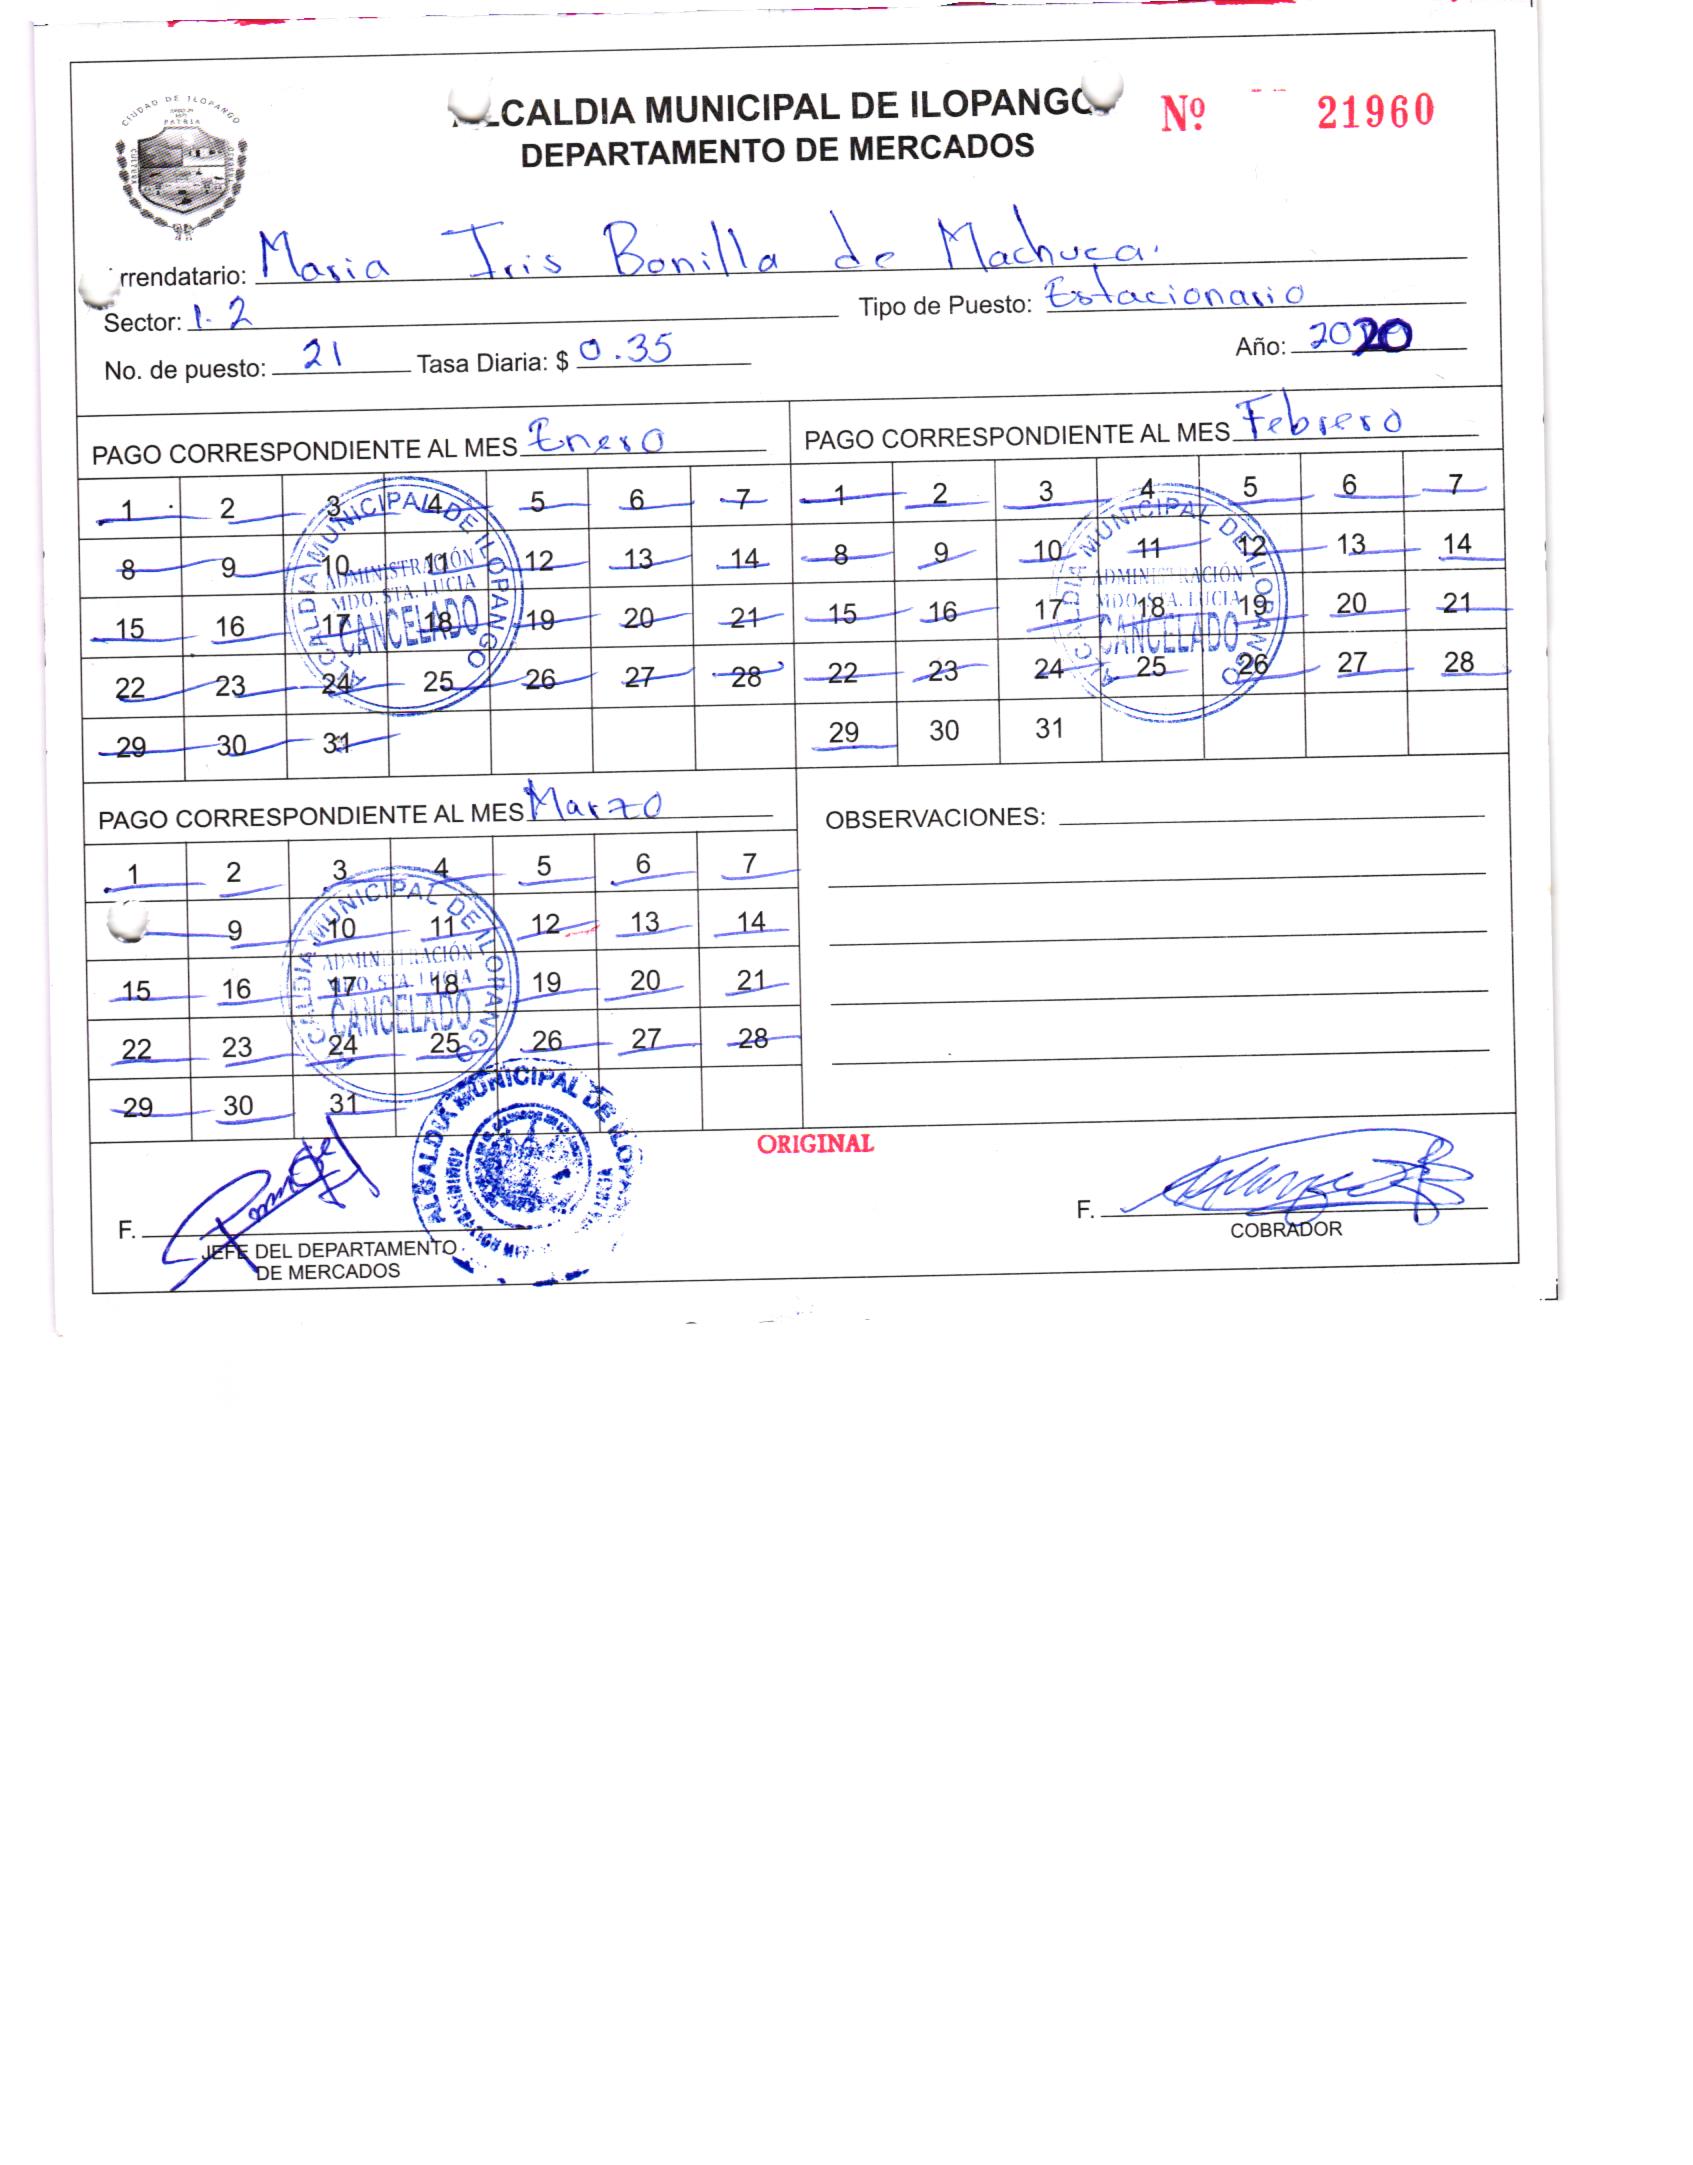 CIUDAD DE ILOPANGO
PATRIA
ALCALDIA MUNICIPAL DE ILOPANGO
DEPARTAMENTO DE MERCADOS
Nº 21960
rrendatario: Maria Iris Bonilla de Machuca.
Sector: 1.2 Tipo de Puesto: Estacionario
No. de puesto: 21 Tasa Diaria: $ 0.35 Año: 2020
PAGO CORRESPONDIENTE AL MES Enero
1 2 3 4 5 6 7
8 9 10 11 12 13 14
15 16 17 18 19 20 21
22 23 24 25 26 27 28
29 30 31
ALCALDIA MUNICIPAL DE ILOPANGO
ADMINISTRACIÓN
MDO. STA. LUCIA
CANCELADO
PAGO CORRESPONDIENTE AL MES Febrero
1 2 3 4 5 6 7
8 9 10 11 12 13 14
15 16 17 18 19 20 21
22 23 24 25 26 27 28
29 30 31
ALCALDIA MUNICIPAL DE ILOPANGO
ADMINISTRACIÓN
MDO. STA. LUCIA
CANCELADO
PAGO CORRESPONDIENTE AL MES Marzo
1 2 3 4 5 6 7
9 10 11 12 13 14
15 16 17 18 19 20 21
22 23 24 25 26 27 28
29 30 31
ALCALDIA MUNICIPAL DE ILOPANGO
ADMINISTRACIÓN
MDO. STA. LUCIA
CANCELADO
OBSERVACIONES:
ALCALDIA MUNICIPAL DE ILOPA
ORIGINAL
F.
JEFE DEL DEPARTAMENTO
DE MERCADOS
F.
COBRADOR